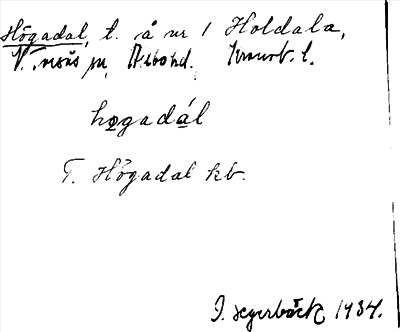 Högadal, t. å nr 1 Holdala,
V. Torsås sn, Allbo hd. Kronob. l.
hogadál
T. Högadal kb.
I. Segerbäck 1934.